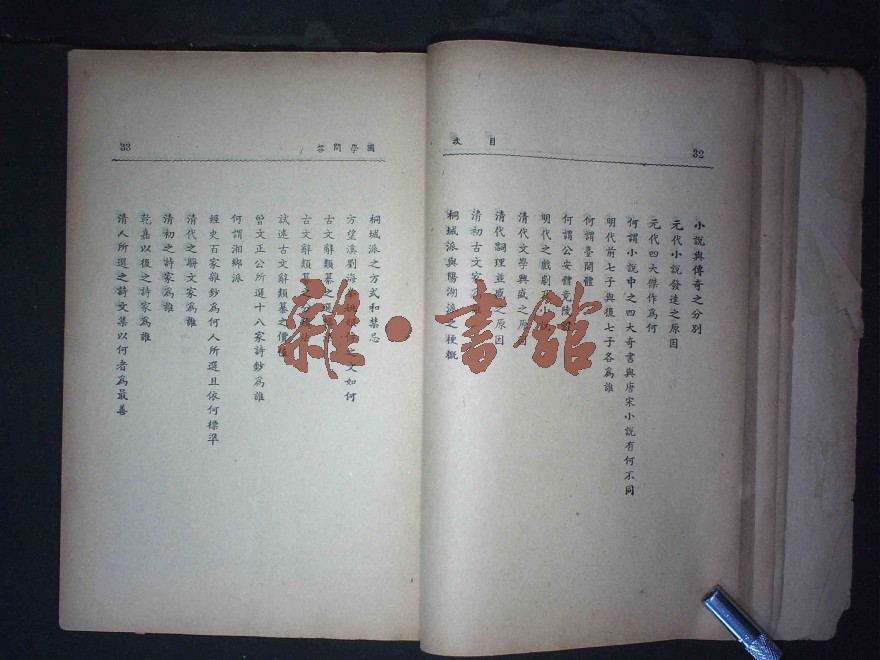 目次
32
小說與傳奇之分別
元代小說發達之原因
元代四大傑作爲何
何謂小說中之四大奇書與唐宋小說有何不同
明代前七子與後七子各爲誰
何謂臺閣體
何謂公安體竟陵
明代之戲劇
清代文學興盛之原因
清代詞理並盛之原因
清初古文家
桐城派與陽湖派之梗概
國學問答
33
桐城派之方式和禁忌
方望溪劉海 之文如何
古文辭類纂之選
古文辭類纂
試述古文辭類纂之價值
曾文正公所選十八家詩鈔爲誰
何謂湘鄉派
經史百家雜鈔爲何人所選且依何標準
清代之駢文家爲誰
清初之詩家爲誰
乾嘉以後之詩家爲誰
清人所選之詩文集以何者爲最善
雜·書館